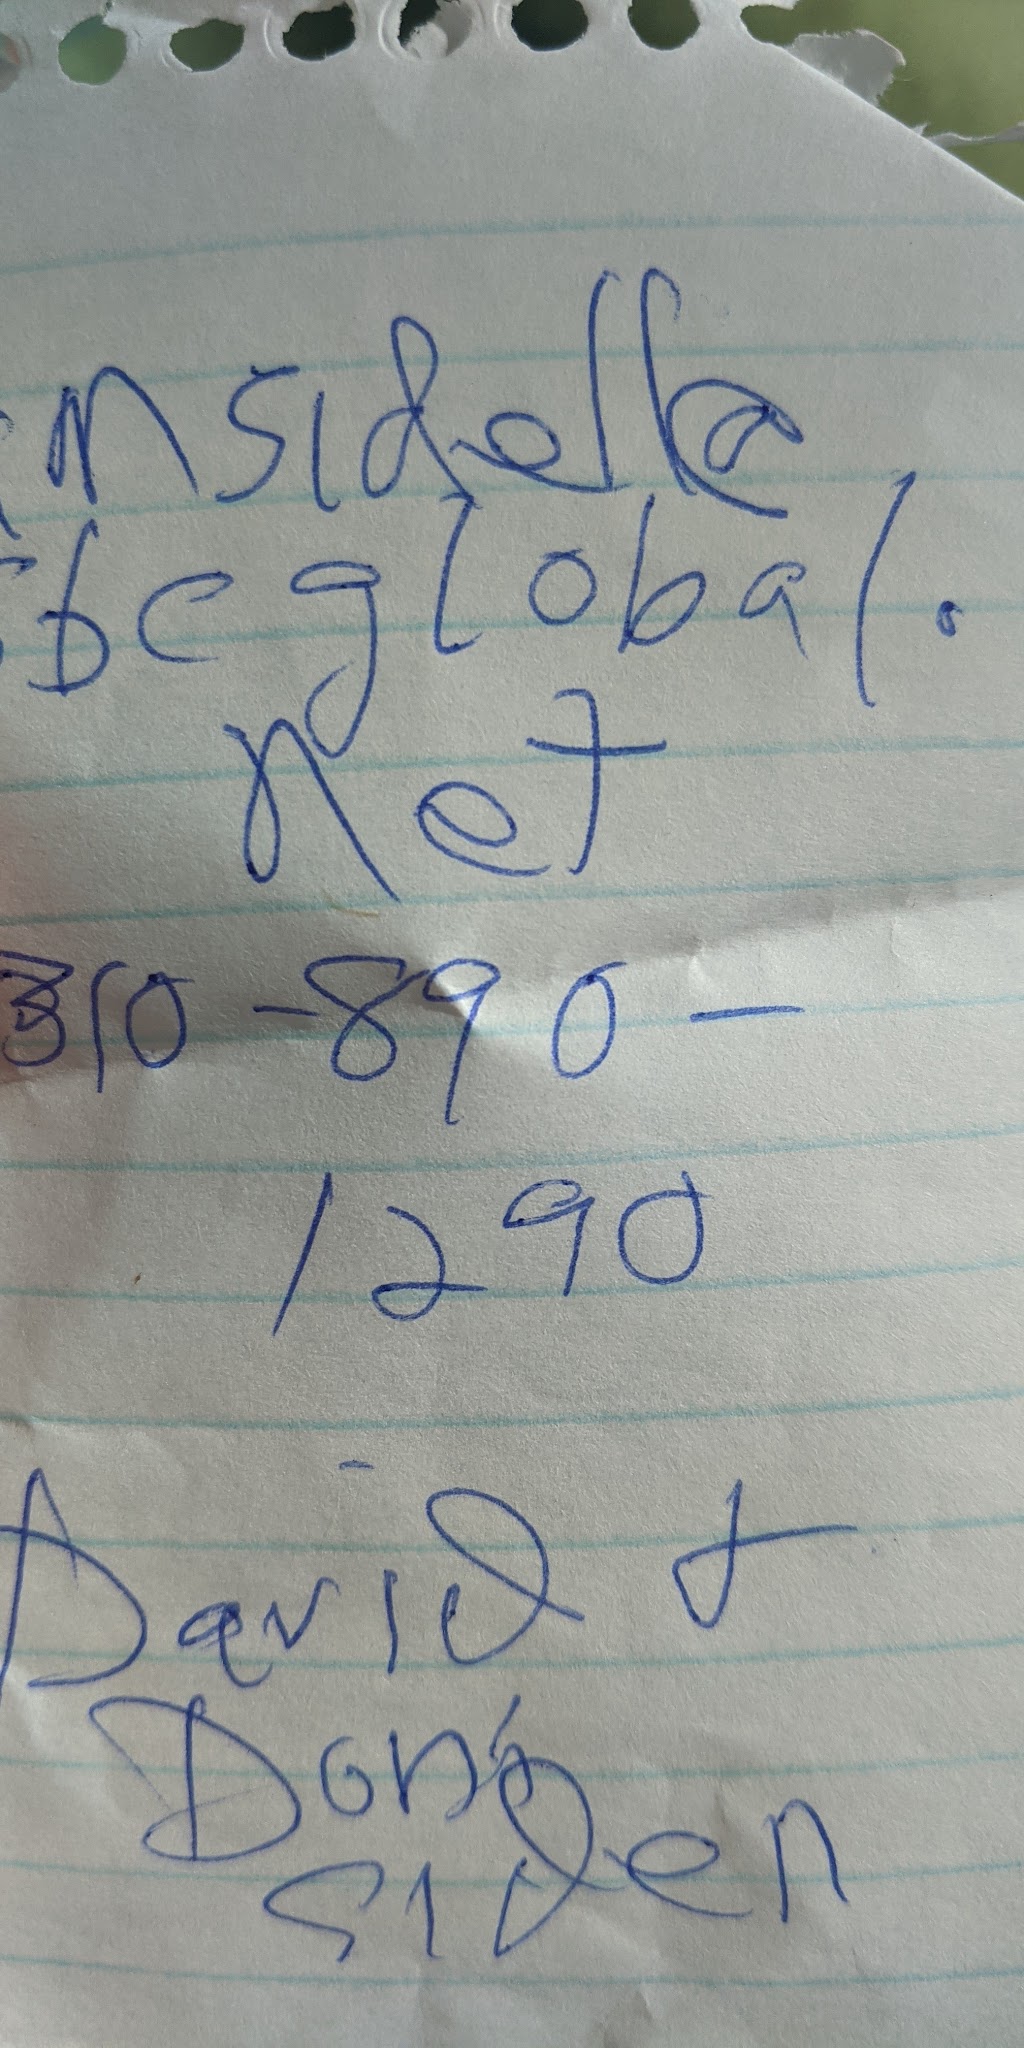 insidella
sbcglobal.
net
310-890-
1290
David +
Don's
siden